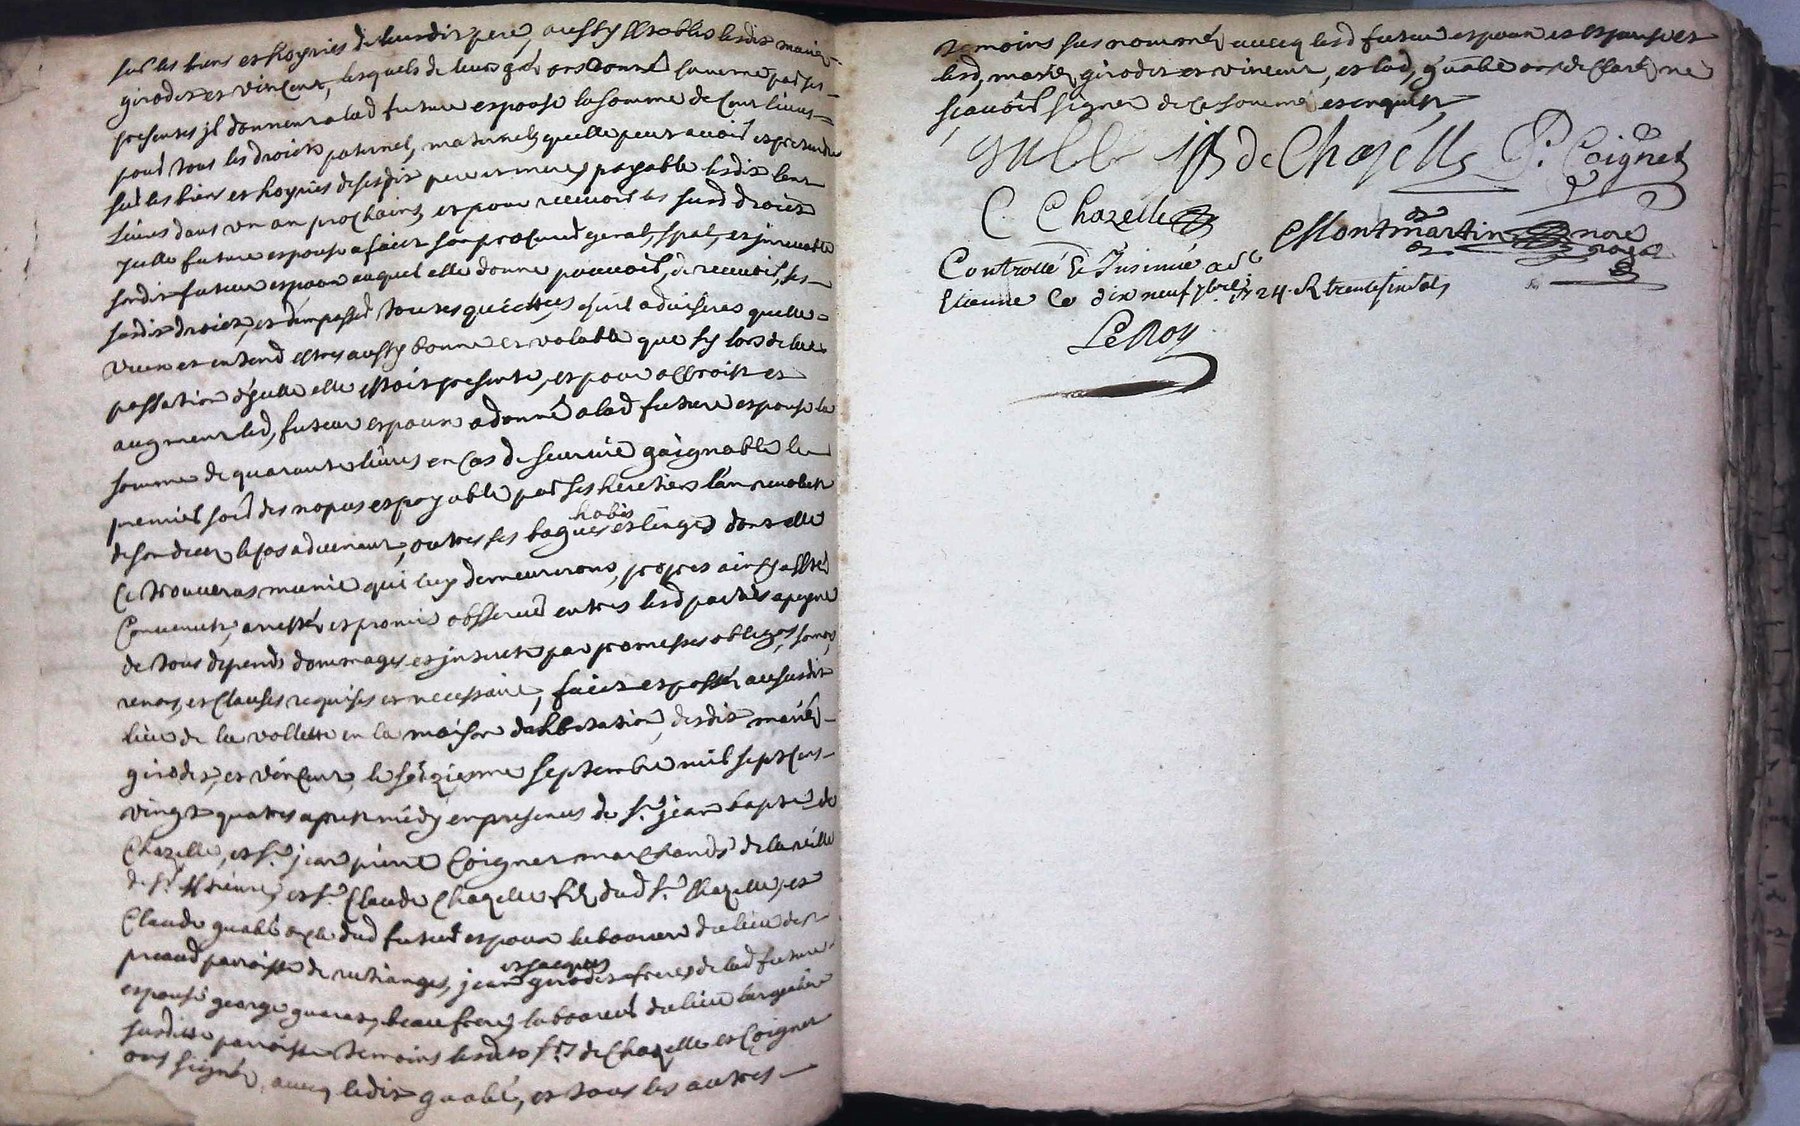 sur les biens et hoyries de leurdit pere, aussy establis lesdit mariés
girodet et vincent, lesquels de leurs gré ont donné comme par ses
presentes jl donnent a lad future espouse la somme de cent livres
pour tous les droicts paternel, maternels quelle peut avoir et pretendre
sur les biens et hoyries desesdit pere et mere, payable lesdit cent
livres dans un an prochaint, et pour recevoir les susd droicts
jcelle future espouse a faict son procureur general, spal, et jrrevocable
sondit futeur espoux auquel elle donne pouvoir, de recevoir, ses
susdit droict, et den passer toutes quictances quil advisera quelle
veux et entend estre aussy bonne et valable que sy lors de la
passation djcelle elle estoit presente, et pour accroist et
augment led, futeur espoux a donné a lad future espouse la
somme de quarante livres en cas de survie gaignable le
premier soir des nopces et payable par ses heretiers lan revolut
de son deces le cas advenant, outre ses bagues habis et linges dont elle
ce trouveras munie qui luy demeureront, propres ainsy a esté
convenut, arresté et promis observer entre lesd parties a peyne
de tous depends dommages et jnterets par promesses obligons, soumons,
renons, et clauses requises et necessaire, faict et passé, au susdit
lieu de la vollette en la maison dabbitation, desdit mariés
girodet, et vincent, le séiziesme septembre mil sept cens
vingt quatre apres midy en presences de sr jean bapte de
Chazelle, et sr jean pierre Coignet marchands de la ville
de st Etienne, et sr Claude Chazelle fils dud sr Chazelle, et
Claude guablé oncle dud futeur espoux laboureur du lieu de
parroisse de rutianges, jean et jacques girodet freres de lad future
espouse george beau frere, laboureur du lieu
susditte parroisse temoins lesdits srs de Chazelle et Coignet
ont signés, avecq ledit guablé, et tous les autres
temoins sus nommés avecq lesd futeur espoux et espouse et
lesd, mariés girodet et vincent, et lad, guablé ont declaré ne
scavoir signer de ce sommé et enquist
JB de Chazelle P. Coignet
C Chazelle
Montmartin nore royal
Controllé & Jnsinué a St
Etienne Ce dix neuf 7bre 1724. R trente sinc sols
LeRoy